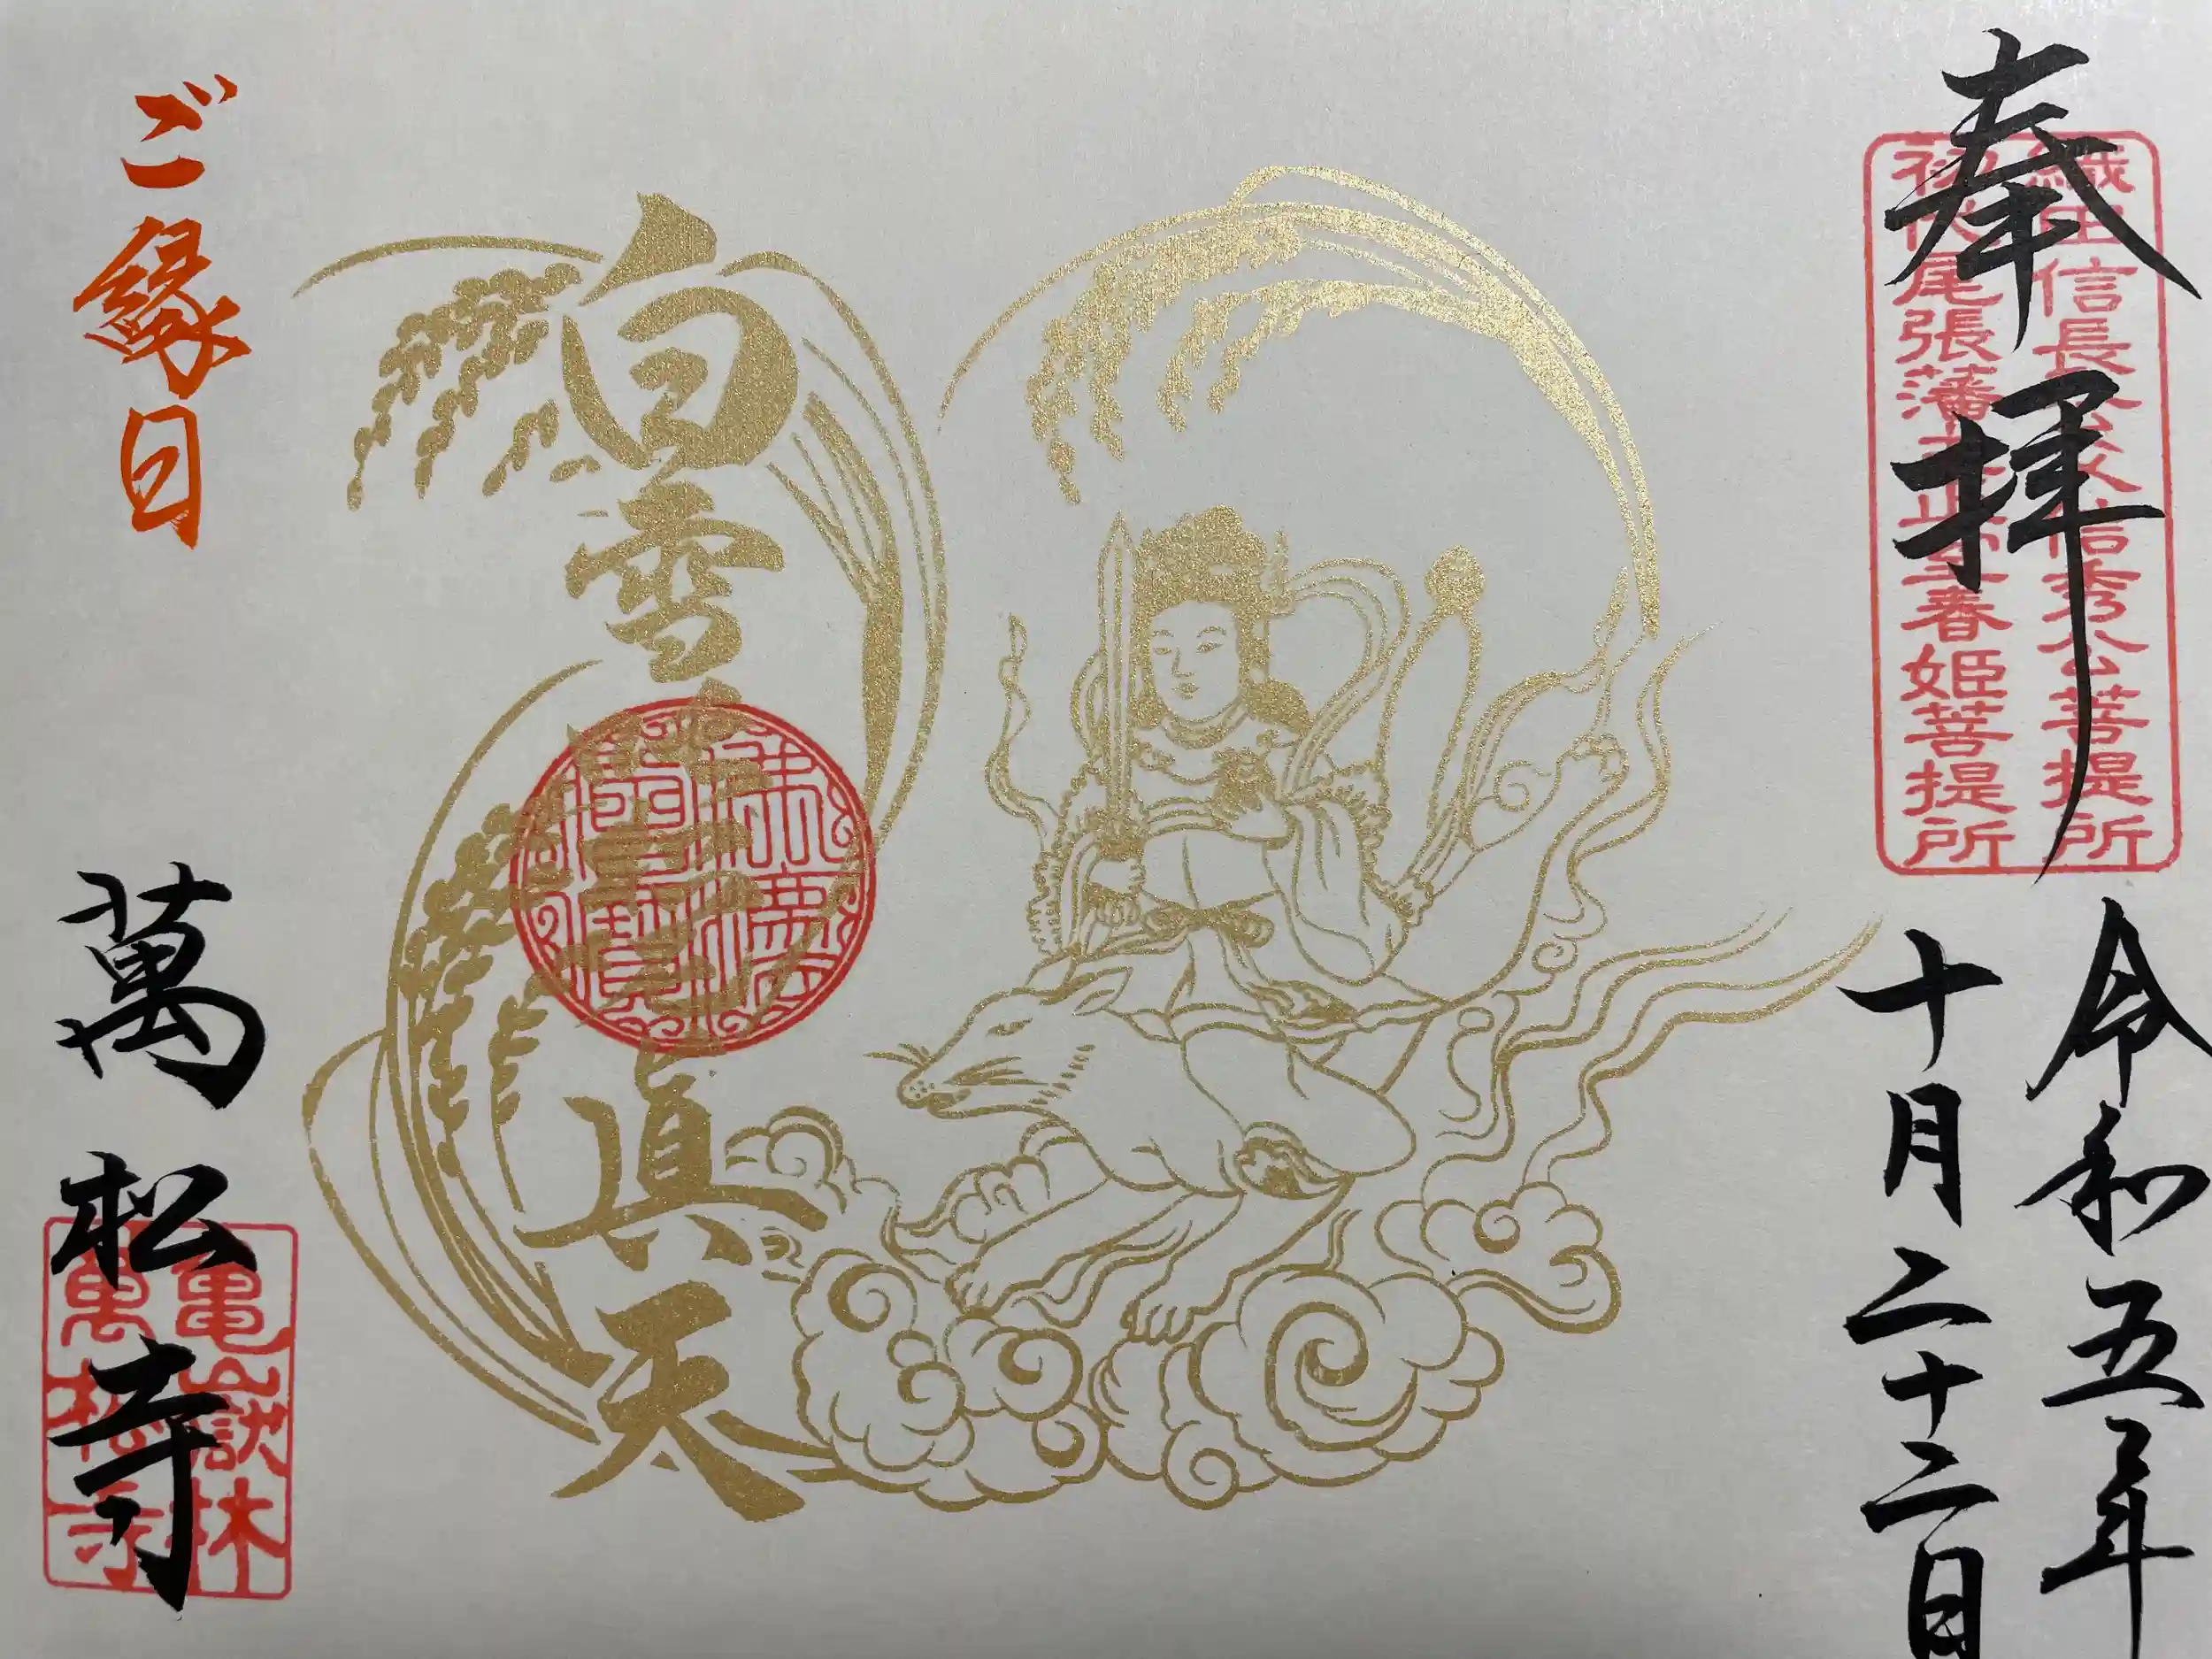 奉拝
織田信長公父信秀公菩提所
初代尾張藩主正室春姫菩提所
令和五年
十月二十二日
白雪
眞天
ご縁日
萬松寺
亀岳林
萬松寺